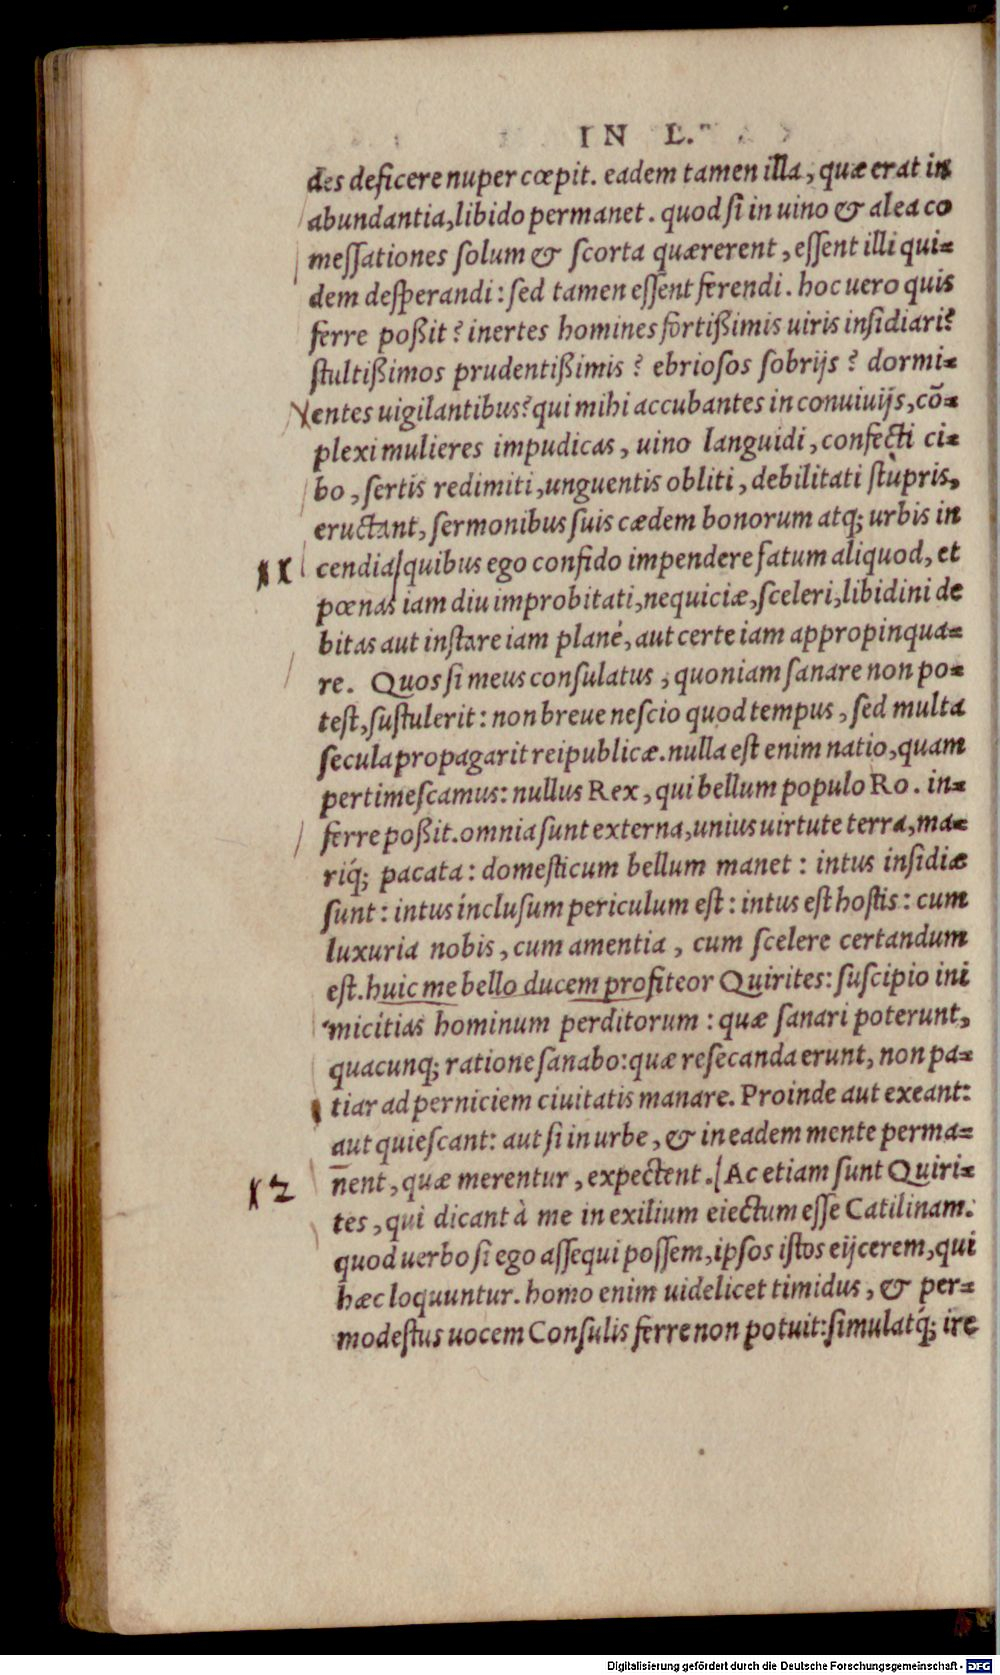 IN L.
des deficere nuper cœpit. eadem tamen illa, quæ erat in
abundantia, libido permanet. quod si in uino & alea co
meſſationes ſolum & ſcorta quærerent, eſſent illi qui=
dem deſperandi: ſed tamen eſſent ferendi. hoc uero quis
ferre poßit? inertes homines fortißimis uiris inſidiari?
ſtultißimos prudentißimis? ebrioſos ſobrijs? dormi=
entes uigilantibus? qui mihi accubantes in conuiuijs, cō=
plexi mulieres impudicas, uino languidi, confecti ci=
bo, ſertis redimiti, unguentis obliti, debilitati ſtupris,
eructant, ſermonibus ſuis cædem bonorum atq; urbis in
11 cendia, quibus ego confido impendere fatum aliquod, et
pœnas iam diu improbitati, nequiciæ, ſceleri, libidini de
bitas aut inſtare iam plané, aut certe iam appropinqua=
re. Quos ſi meus conſulatus, quoniam ſanare non po=
teſt, ſuſtulerit: non breue neſcio quod tempus, ſed multa
ſecula propagarit reipublicæ. nulla eſt enim natio, quam
pertimeſcamus: nullus Rex, qui bellum populo Ro. in=
ferre poßit. omnia ſunt externa, unius uirtute terra, ma=
riq́; pacata: domeſticum bellum manet: intus inſidiæ
ſunt: intus incluſum periculum eſt: intus eſt hoſtis: cum
luxuria nobis, cum amentia, cum ſcelere certandum
eſt. huic me bello ducem profiteor Quirites: ſuſcipio ini
micitias hominum perditorum: quæ ſanari poterunt,
quacunq; ratione ſanabo: quæ reſecanda erunt, non pa=
tiar ad perniciem ciuitatis manare. Proinde aut exeant:
aut quieſcant: aut ſi in urbe, & in eadem mente perma=
nent, quæ merentur, expectent. Ac etiam ſunt Quiri=
12 tes, qui dicant à me in exilium eiectum eſſe Catilinam:
quod uerbo ſi ego aſſequi poſſem, ipſos iſtos eijcerem, qui
hæc loquuntur. homo enim uidelicet timidus, & per=
modeſtus uocem Conſulis ferre non potuit: ſimulatq́; ire
Digitalisierung gefördert durch die Deutsche Forschungsgemeinschaft - DFG